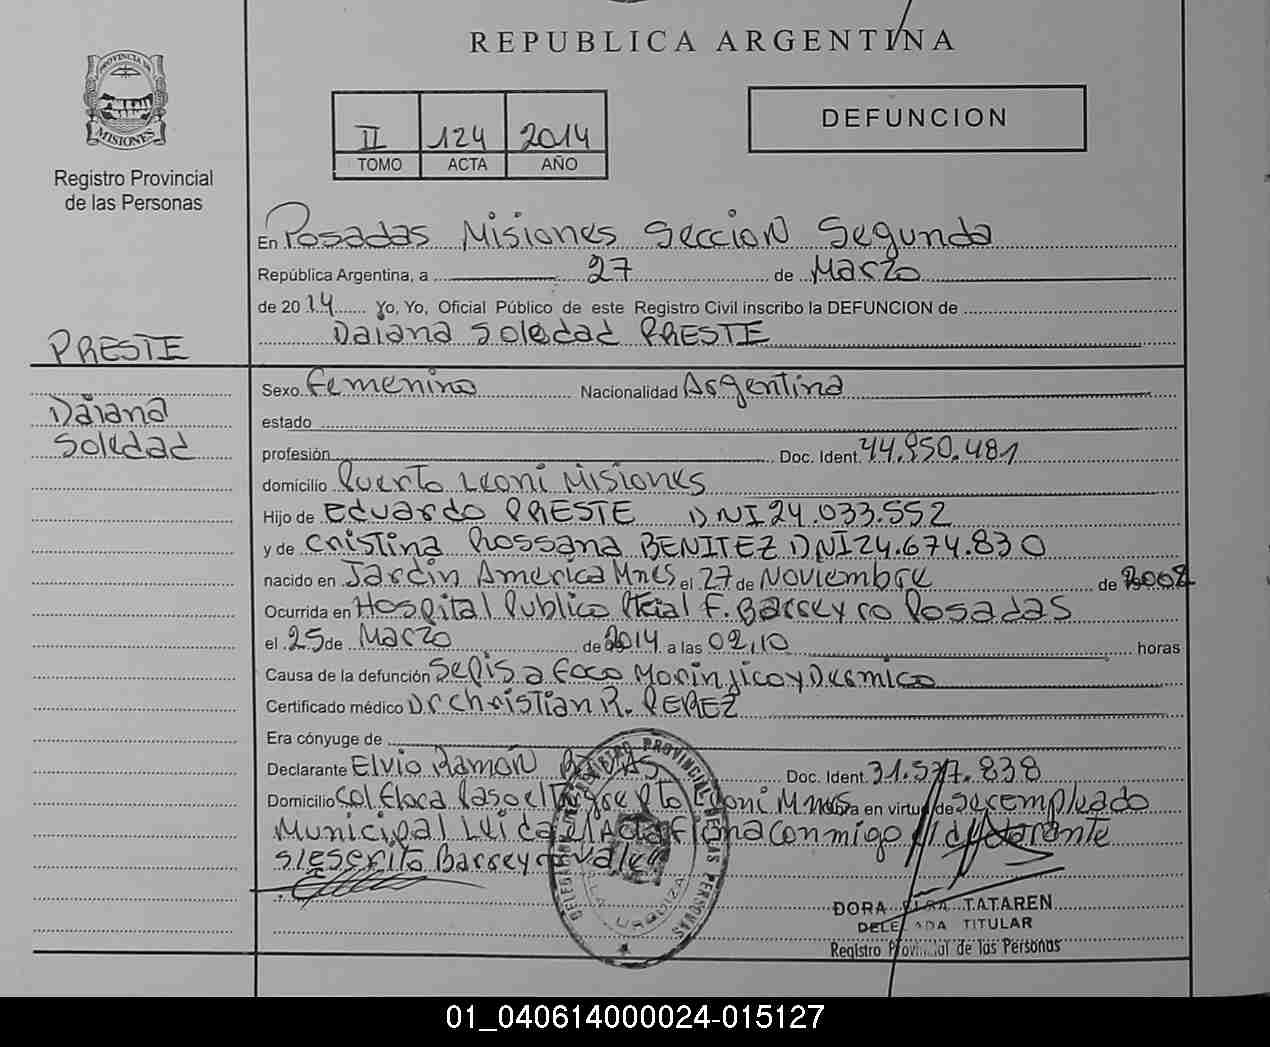 REPUBLICA ARGENTINA
PROVINCIA DE
MISIONES
Registro Provincial
de las Personas
II 124 2014
TOMO ACTA AÑO
DEFUNCION
En Posadas Misiones Seccion Segunda
República Argentina, a 27 de Marzo
de 2014 Yo, Yo, Oficial Público de este Registro Civil inscribo la DEFUNCION de
Daiana Soledad PRESTE
PRESTE
Daiana
Soledad
Sexo Femenino Nacionalidad Argentina
estado
profesión Doc. Ident. 44.950.481
domicilio Puerto Leoni Misiones
Hijo de Eduardo PRESTE DNI 24.033.552
y de Cristina Rossana BENITEZ DNI 24.674.830
nacido en Jardin America Mnes el 27 de Noviembre de
Ocurrida en Hospital Publico F. Barreyro Posadas
el 25 de Marzo de 2014 a las 02,10 horas
Causa de la defunción Sepis a foco y Dermico
Certificado médico Dr Christian R. PEREZ
Era cónyuge de
Declarante Elvio Ramón Doc. Ident.
Domicilio Leoni Mnes Obra en virtud de ser empleado
Municipal Leida el Acta firma conmigo el declarante
Barreyro Vale
DELEGACION DE REGISTRO PROVINCIAL DE LAS PERSONAS
URQUIZA
DORA TATAREN
DELEGADA TITULAR
Registro Provincial de las Personas
01_040614000024-015127